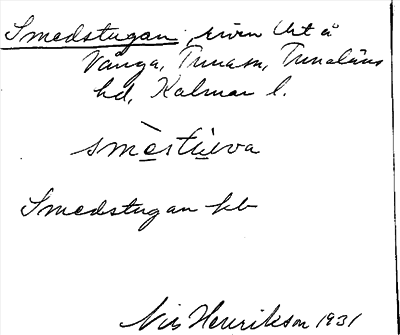 Smedstugan, riven lht å
Vånga, Tunasn, Tunaläns
hd, Kalmar l.
smèstùva
Smedstugan kb
Nils Henrikson 1931